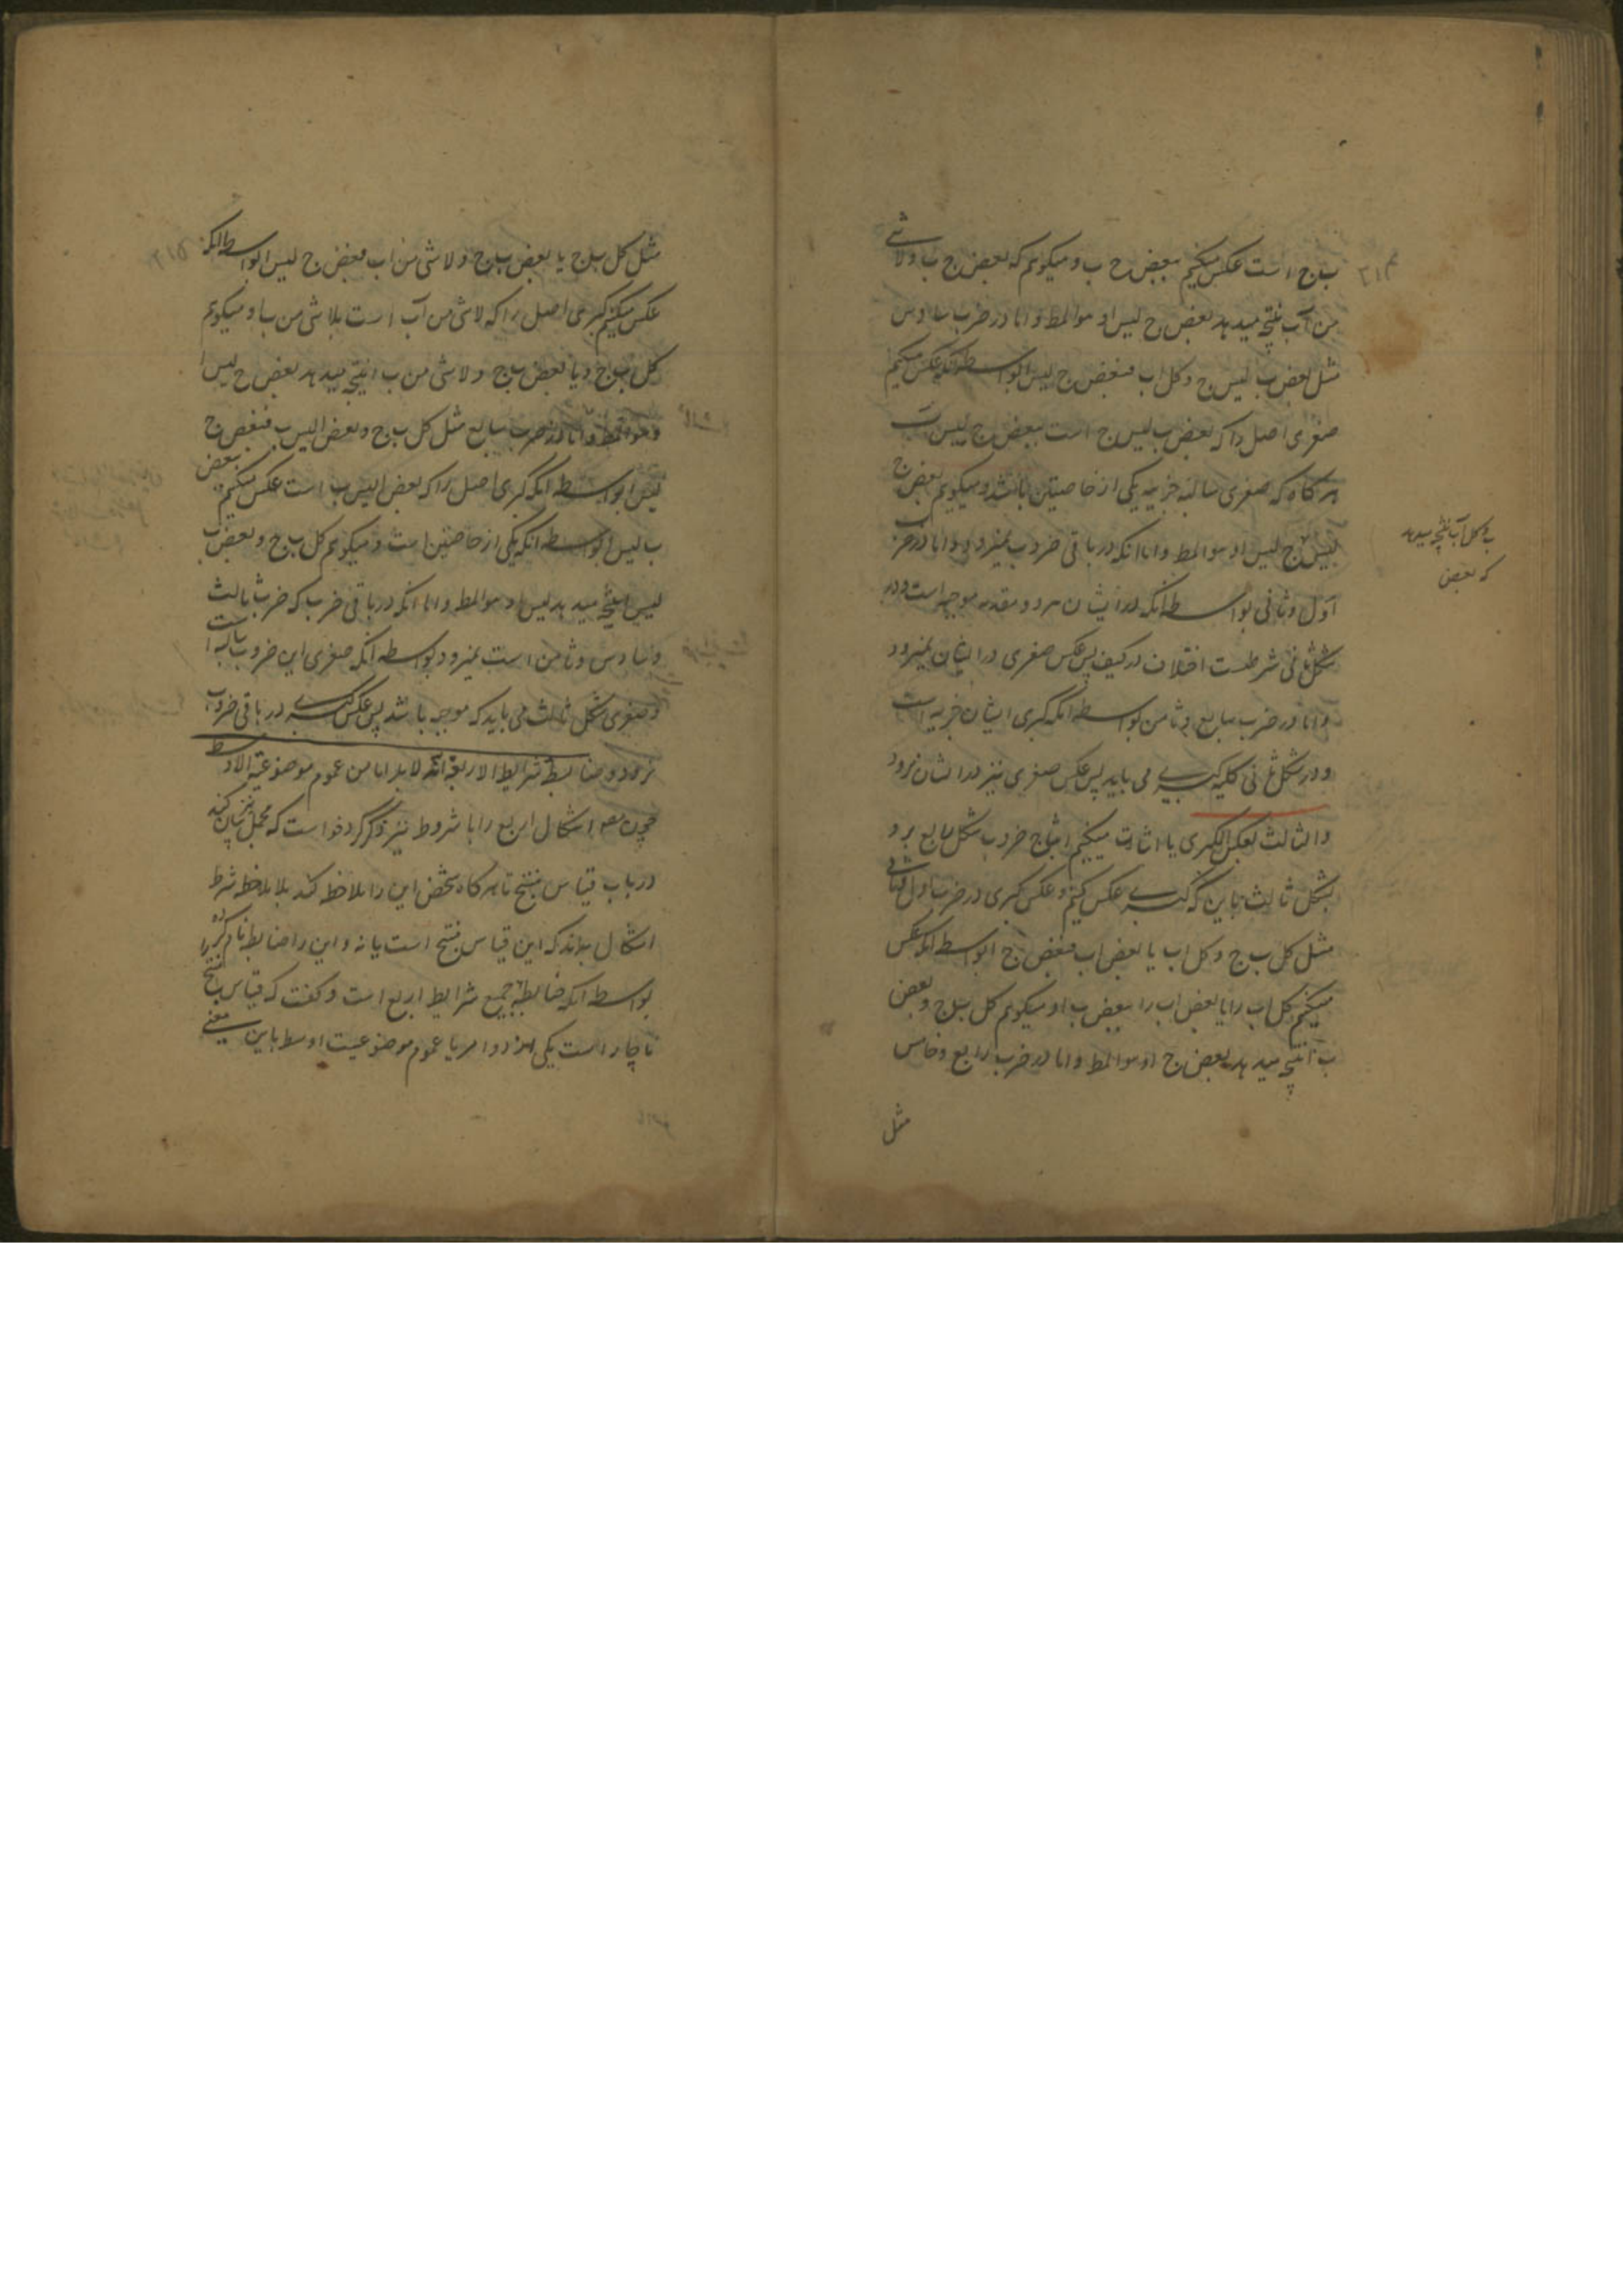 ب ج است عکس میکنیم ببعض ج ب و میکویم که بعض ج ب و لا شی
من آب نتیجه میدهد بعض ج لیس ا و هو المط و اما در ضرب سادس
مثل بعض ب لیس ج و کل اب فبعض ج لیس ا بواسطه آنکه عکس میکنیم
صغری اصل را که بعض ب لیس ج است ببعض ج لیس ب
هر کاه که صغری سالبه جزییه یکی از خاصیتین باشد و میکویم بعض ج
لیس ب ج لیس ا و هو المط و اما انکه در باقی ضروب نمیرود و اما در ضرب
اول و ثانی بواسطه انکه در ایشان هر دو مقدمه موجبه است و در
شکل ثانی شرطست اختلاف در کیف پس عکس صغری در ایشان نمیرود
و اما در ضرب سابع و ثامن بواسطه انکه کبری ایشان جزییه است
و در شکل ثانی کلیه کبری می باید پس عکس صغری نیز در ایشان نرود
و الثالث بعکس الکبری یا اثبات میکنیم انتاج ضروب شکل رابع برد
بشکل ثالث باین که کبری عکس کنیم و عکس کبری در ضرب اول و ثانی
مثل کل ب ج و کل اب یا بعض اب فبعض ج ا بواسطه انکه عکس
میکنیم کل اب را یا بعض اب را ببعض ب ا و میکویم کل ب ج و بعض
ب ا نتیجه میدهد بعض ج ا و هو المط و اما در ضرب رابع و خامس
مثل
و کل آب نتیجه میدهد
که بعض
مثل کل ب ج یا بعض ب ج و لا شی من اب فبعض ج لیس ا بواسطه انکه
عکس میکنیم کبری اصل را که لا شی من آب است بلا شی من ب ا و میکویم
کل ب ج و یا بعض ب ج و لا شی من ب ا نتیجه میدهد بعض ج لیس ا
و هو المط و اما در ضرب سابع مثل کل ب ج و بعض ا لیس ب فبعض ج
لیس ا بواسطه انکه کبری اصل را که بعض ا لیس ب است عکس میکنیم ببعض
ب لیس ا بواسطه انکه یکی از خاصتین است و میکویم کل ب ج و بعض ب
لیس ا نتیجه میدهد لیس ا و هو المط و اما انکه در باقی ضرب که ضرب ثالث
و سادس و ثامن است نمیرود بواسطه انکه صغری این ضروب سالبه است
و صغری شکل ثالث می باید که موجبه باشد پس عکس کبری در باقی ضروب
نرود و ضابطة شرایط الاربعة انه لا بد اما من عموم موضوعیة الاوسط
چون مص اشکال اربع را با شروط نیز ذکر کرد خواست که مجمل نیز بیان کند
در باب قیاس منتج تا هر کاه شخص این را ملاحظه کند بلا ملاحظه شرط
اشکال بداند که این قیاس منتج است یا نه و این را ضابطه نام کرده
بواسطه انکه ضابطه جمیع شرایط اربع است و کفت که قیاس منتج را
ناچار است یکی از دو امر یا عموم موضوعیت اوسط باین معنی